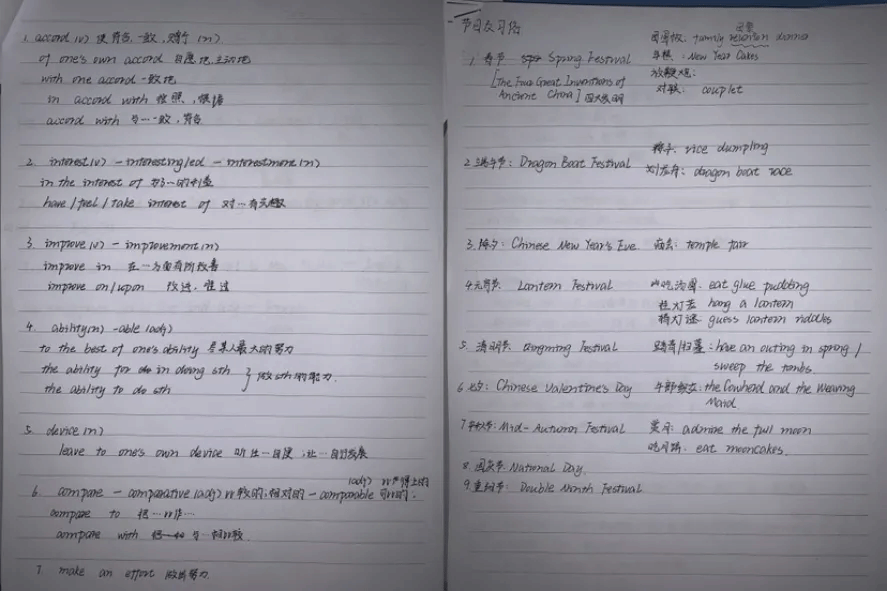 1. accord (v) 使符合,一致,赐予 (n)
of one's own accord 自愿地,主动地
with one accord 一致地
in accord with 按照,根据
accord with 与…一致,符合
2. interest (v) - interesting/ed - interestment (n)
in the interest of 为…的利益
have / feel / take interest of 对…有兴趣
3. improve (v) - improvement (n)
improve in 在…方面有所改善
improve on/upon 改进,推进
4. ability (n) - able (adj)
to the best of one's ability 尽某人最大的努力
the ability for in doing sth
the ability to do sth
} 做sth的能力.
5. device (n)
leave to one's own device 听任…自便;让…自行发展
(adj) 比得上的
6. compare - comparative (adj) 比较的;相对的 - comparable 可比的;
compare to 把…比作…
compare with 与…相比较.
7. make an effort 做出努力.
一节日及习俗
团聚
团圆饭: family reunion dinner
1. 春节 Spring Festival
年糕: New Year Cakes
[The Four Great Inventions of
放鞭炮:
Ancient China] 四大发明
对联: couplet
粽子: rice dumpling
2. 端午节: Dragon Boat Festival
划龙舟: dragon boat race
3. 除夕: Chinese New Year's Eve
庙会: temple fair
4. 元宵节: Lantern Festival
吃汤圆: eat glue pudding
挂灯笼: hang a lantern
猜灯谜: guess lantern riddles
5. 清明节: Qingming Festival
踏青/扫墓: have an outing in spring /
sweep the tombs.
6. 七夕: Chinese Valentine's Day
牛郎织女: the Cowherd and the Weaving
Maid.
7. 中秋节: Mid-Autumn Festival
赏月: admire the full moon
吃月饼: eat mooncakes.
8. 国庆节: National Day.
9. 重阳节: Double Ninth Festival